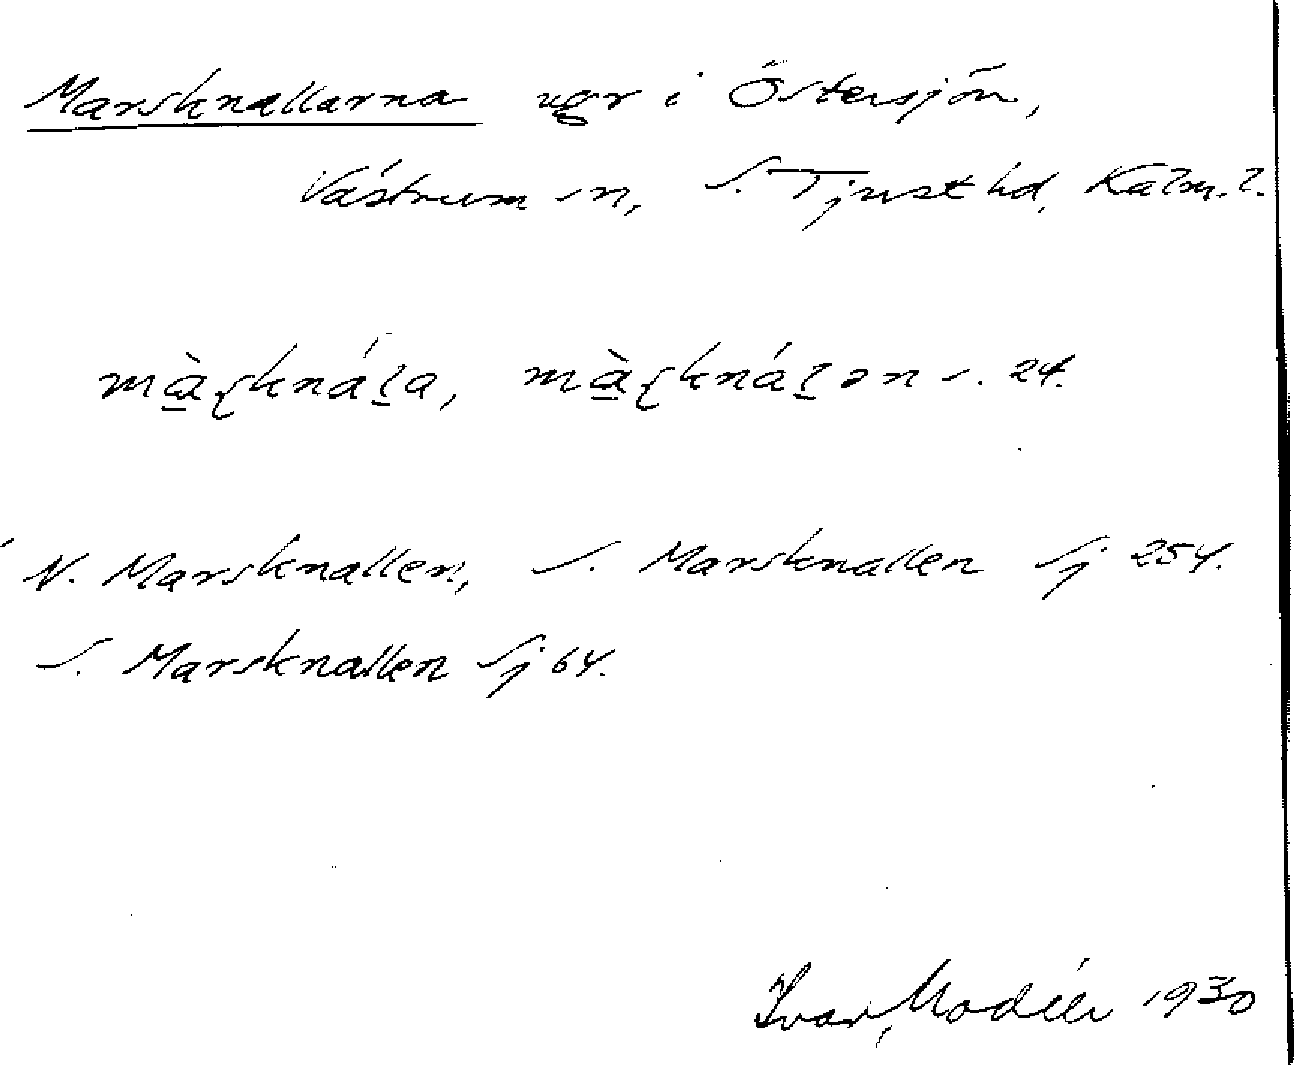 Marsknallarna ugr i Östersjön,
Västrum sn, S. Tjust hd, Kalm. l.
màʂknáḷa, màʂknáḷən s. 24.
N. Marsknallen, S. Marsknallen Sj 254.
S. Marsknallen Sj 64.
Ivar Modéer 1930